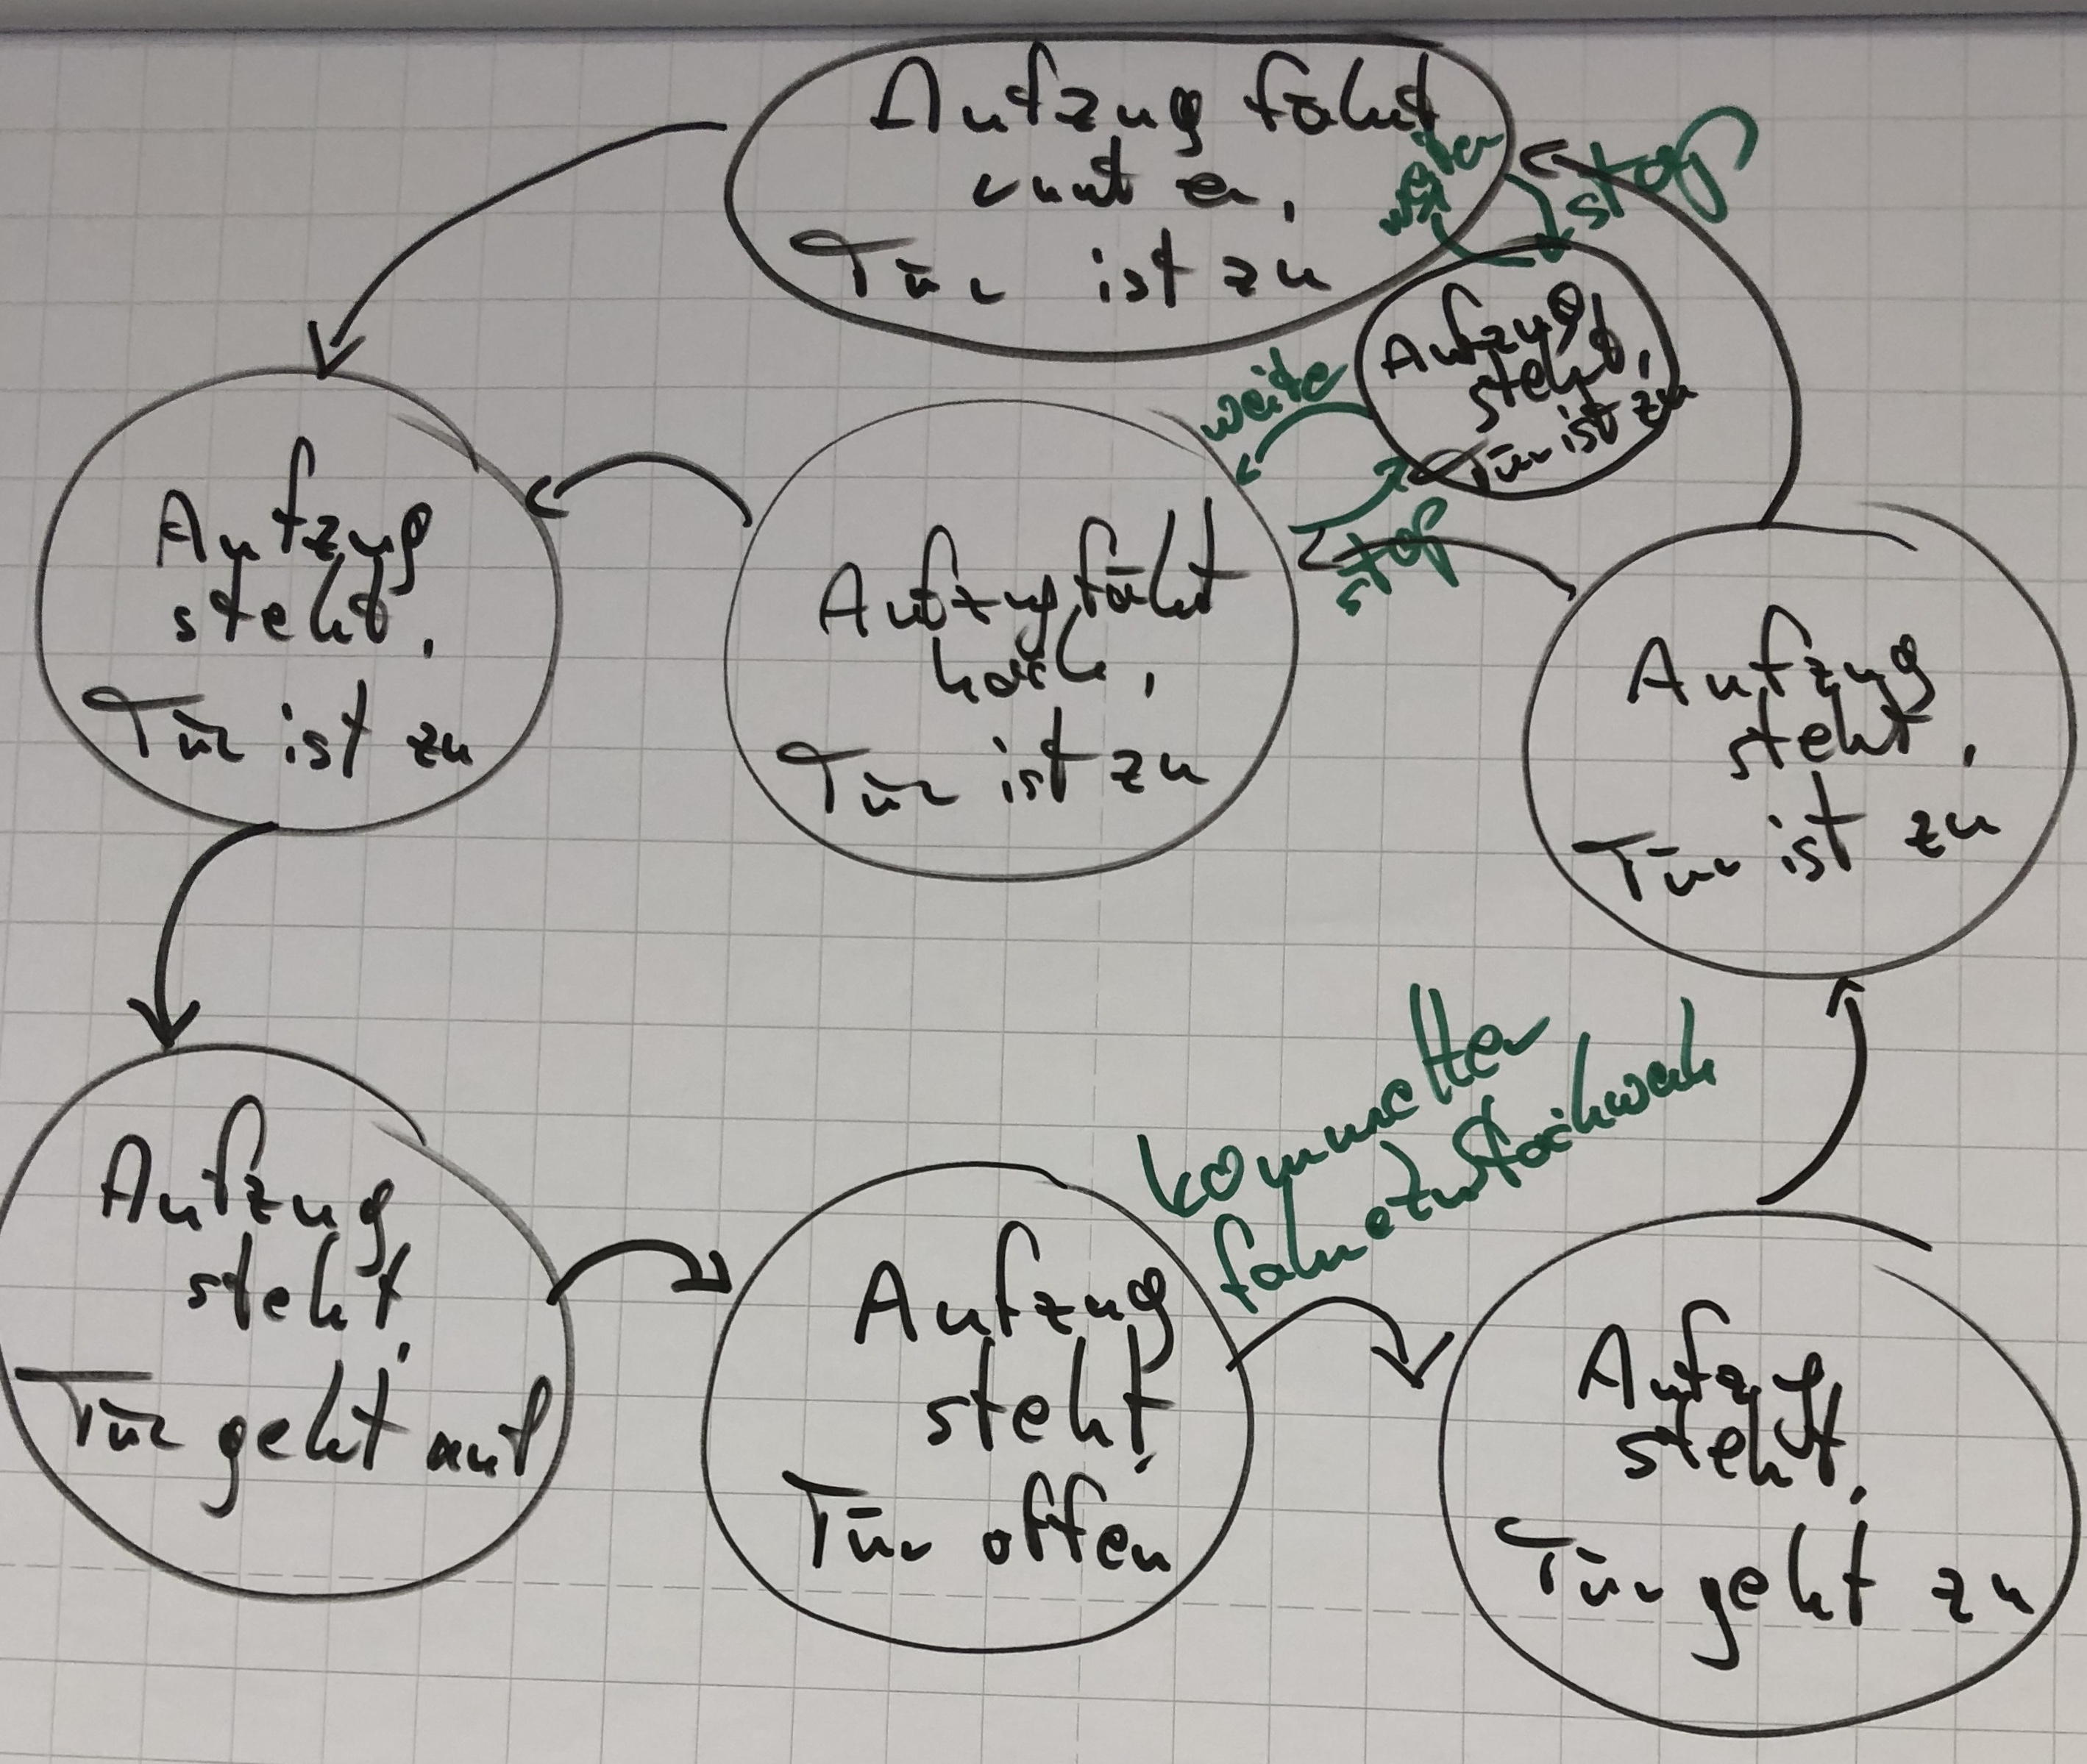 Aufzug fährt
runter,
Tür ist zu
weiter
stop
Aufzug
steht,
Tür ist zu
weiter
stop
Aufzug
steht,
Tür ist zu
Aufzug fährt
hoch,
Tür ist zu
Aufzug
steht,
Tür ist zu
Aufzug
steht,
Tür geht auf
Aufzug
steht,
Tür offen
kommetter
fahrezustockwerk
Aufzug
steht,
Tür geht zu